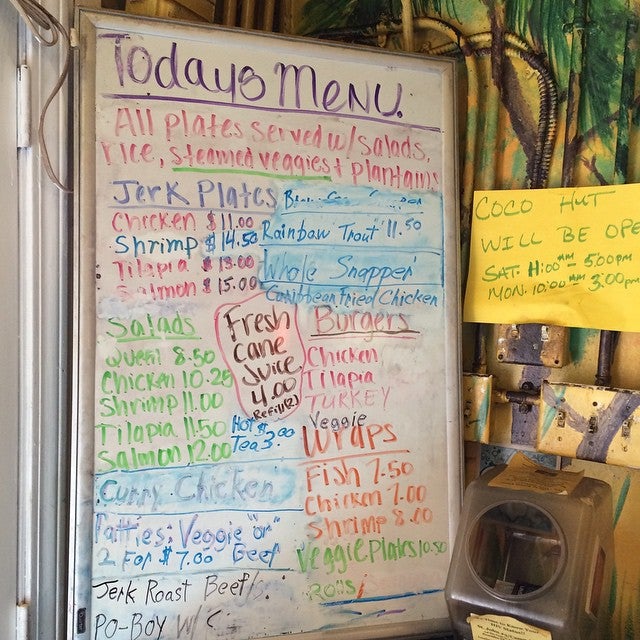 Todays Menu.
All plates served w/ salads,
rice, steamed veggies + plantains
Jerk Plates
Chicken $11.00
Shrimp $14.50
Tilapia $13.00
Salmon $15.00
Rainbow Trout 11.50
Whole Snapper
Caribbean Fried Chicken
Salads
8.50
Chicken 10.25
Shrimp 11.00
Tilapia 11.50
Salmon 12.00
Fresh
Cane
Juice
4.00
Refill(2)
Hot $
Tea 3.00
Burgers
Chicken
Tilapia
TURKEY
Veggie
Wraps
Fish 7.50
Chicken 7.00
Shrimp 8.00
Veggie Plates 10.50
Rotis
Curry Chicken
Patties: Veggie "or"
2 For $7.00 Beef
Jerk Roast Beef
PO-BOY W/
COCO HUT
WILL BE OPE
SAT. 11:00 AM - 5:00pm
MON. 10:00 AM - 3:00pm